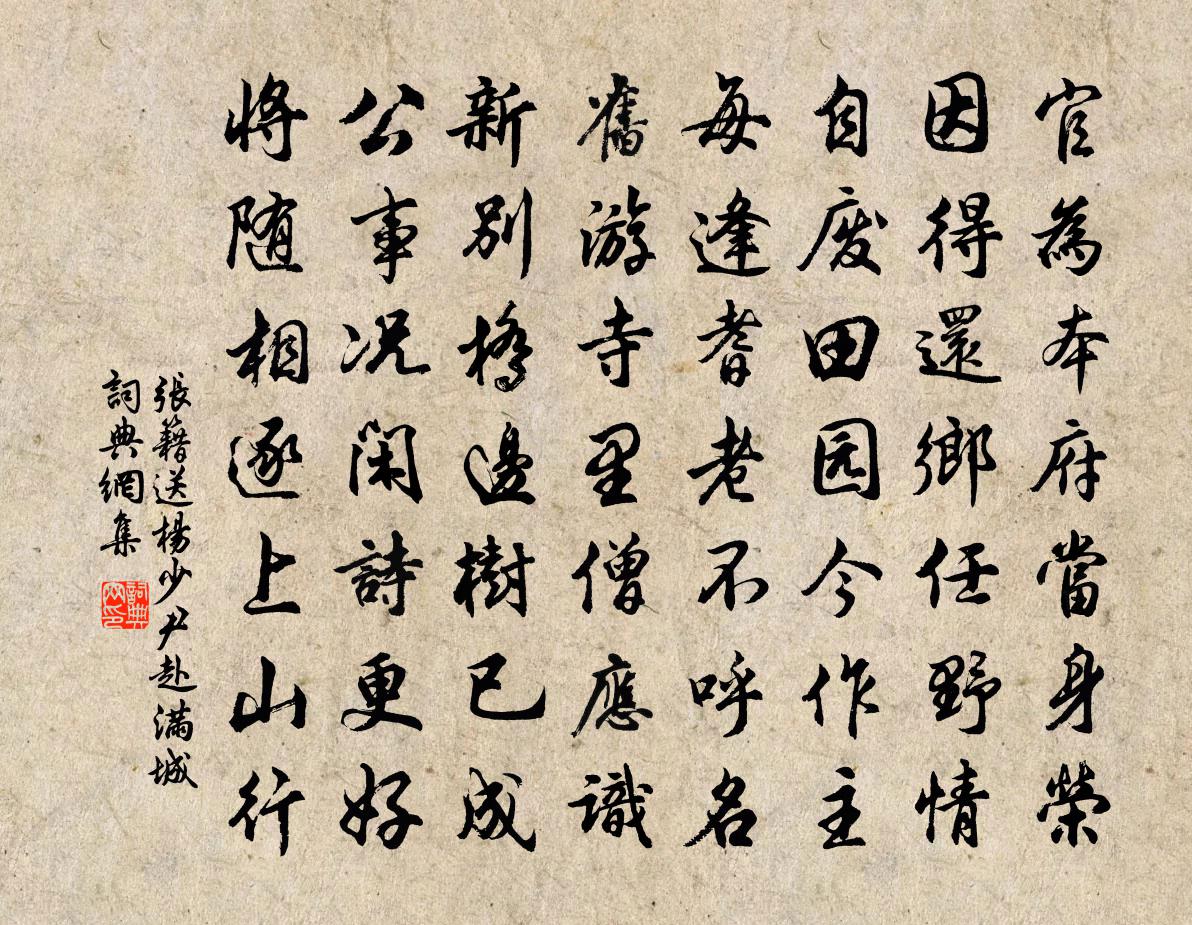 官為本府當身榮
因得還鄉任野情
自废田园今作主
每逢耆老不呼名
舊游寺里僧應識
新別橋邊樹已成
公事况閑詩更好
将随相逐上山行
張籍送楊少尹赴滿城
詞典網集
詞典
网印